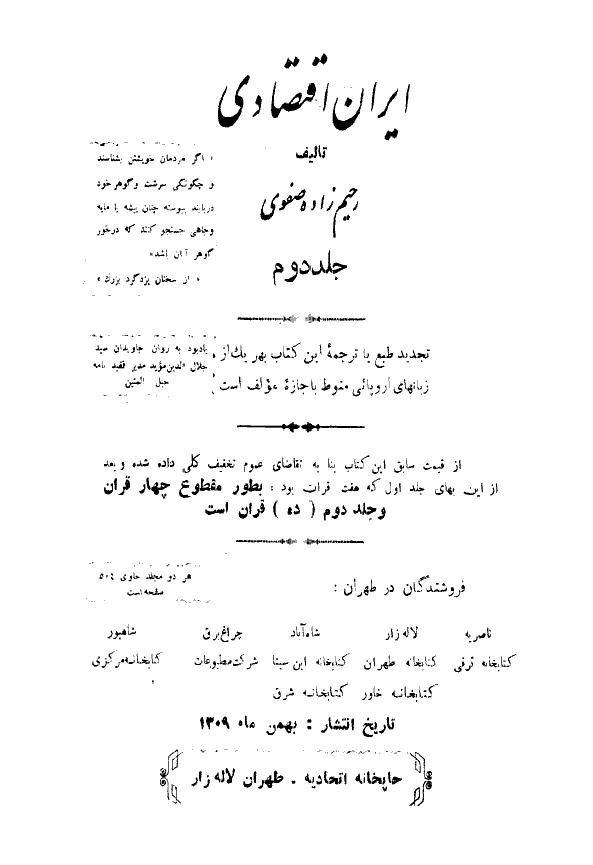 ایران اقتصادی
تالیف
رحیم زاده صفوی
جلد دوم
« اگر مردمان خویشتن بشناسند
و چگونگی سرشت و گوهر خود
دریابند پیوسته چنان پیشه یا مایه
و جاهی جستجو کنند که در خور
گوهر آنان باشد»
« از سخنان یزدگرد بزرك »
تجدید طبع یا ترجمهٔ این کتاب بهر یك از
زبانهای اروپائی منوط باجازهٔ مؤلف است
یادبود به روان جاویدان سید
جلال الدین مؤید مدیر فقید نامه
حبل المتین
از قیمت سابق این کتاب بنا به تقاضای عموم تخفیف کلی داده شده و بعد
از این بهای جلد اول که هفت قران بود ، بطور مقطوع چهار قران
و جلد دوم ( ده ) قران است
هر دو مجلد حاوی ۵۰۴
صفحه است
فروشندگان در طهران :
ناصریه لاله زار شاه آباد چراغ برق شاهپور
کتابخانه ترقی کتابخانه طهران کتابخانه ابن سینا شرکت مطبوعات کتابخانه مرکزی
کتابخانه خاور کتابخانه شرق
تاریخ انتشار : بهمن ماه ۱۳۰۹
چاپخانه اتحادیه - طهران لاله زار